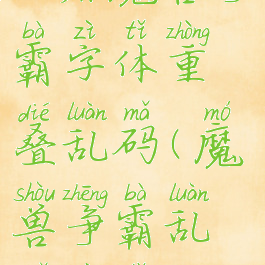 bà zì tǐ zhòng
霸字体重
dié luàn mǎ mó
叠乱码(魔
shòu zhēng bà luàn
兽争霸乱